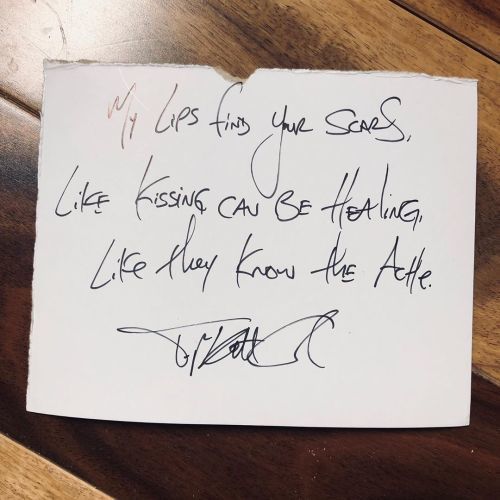 My Lips find your Scars,
Like Kissing can be Healing,
Like they Know the Ache.